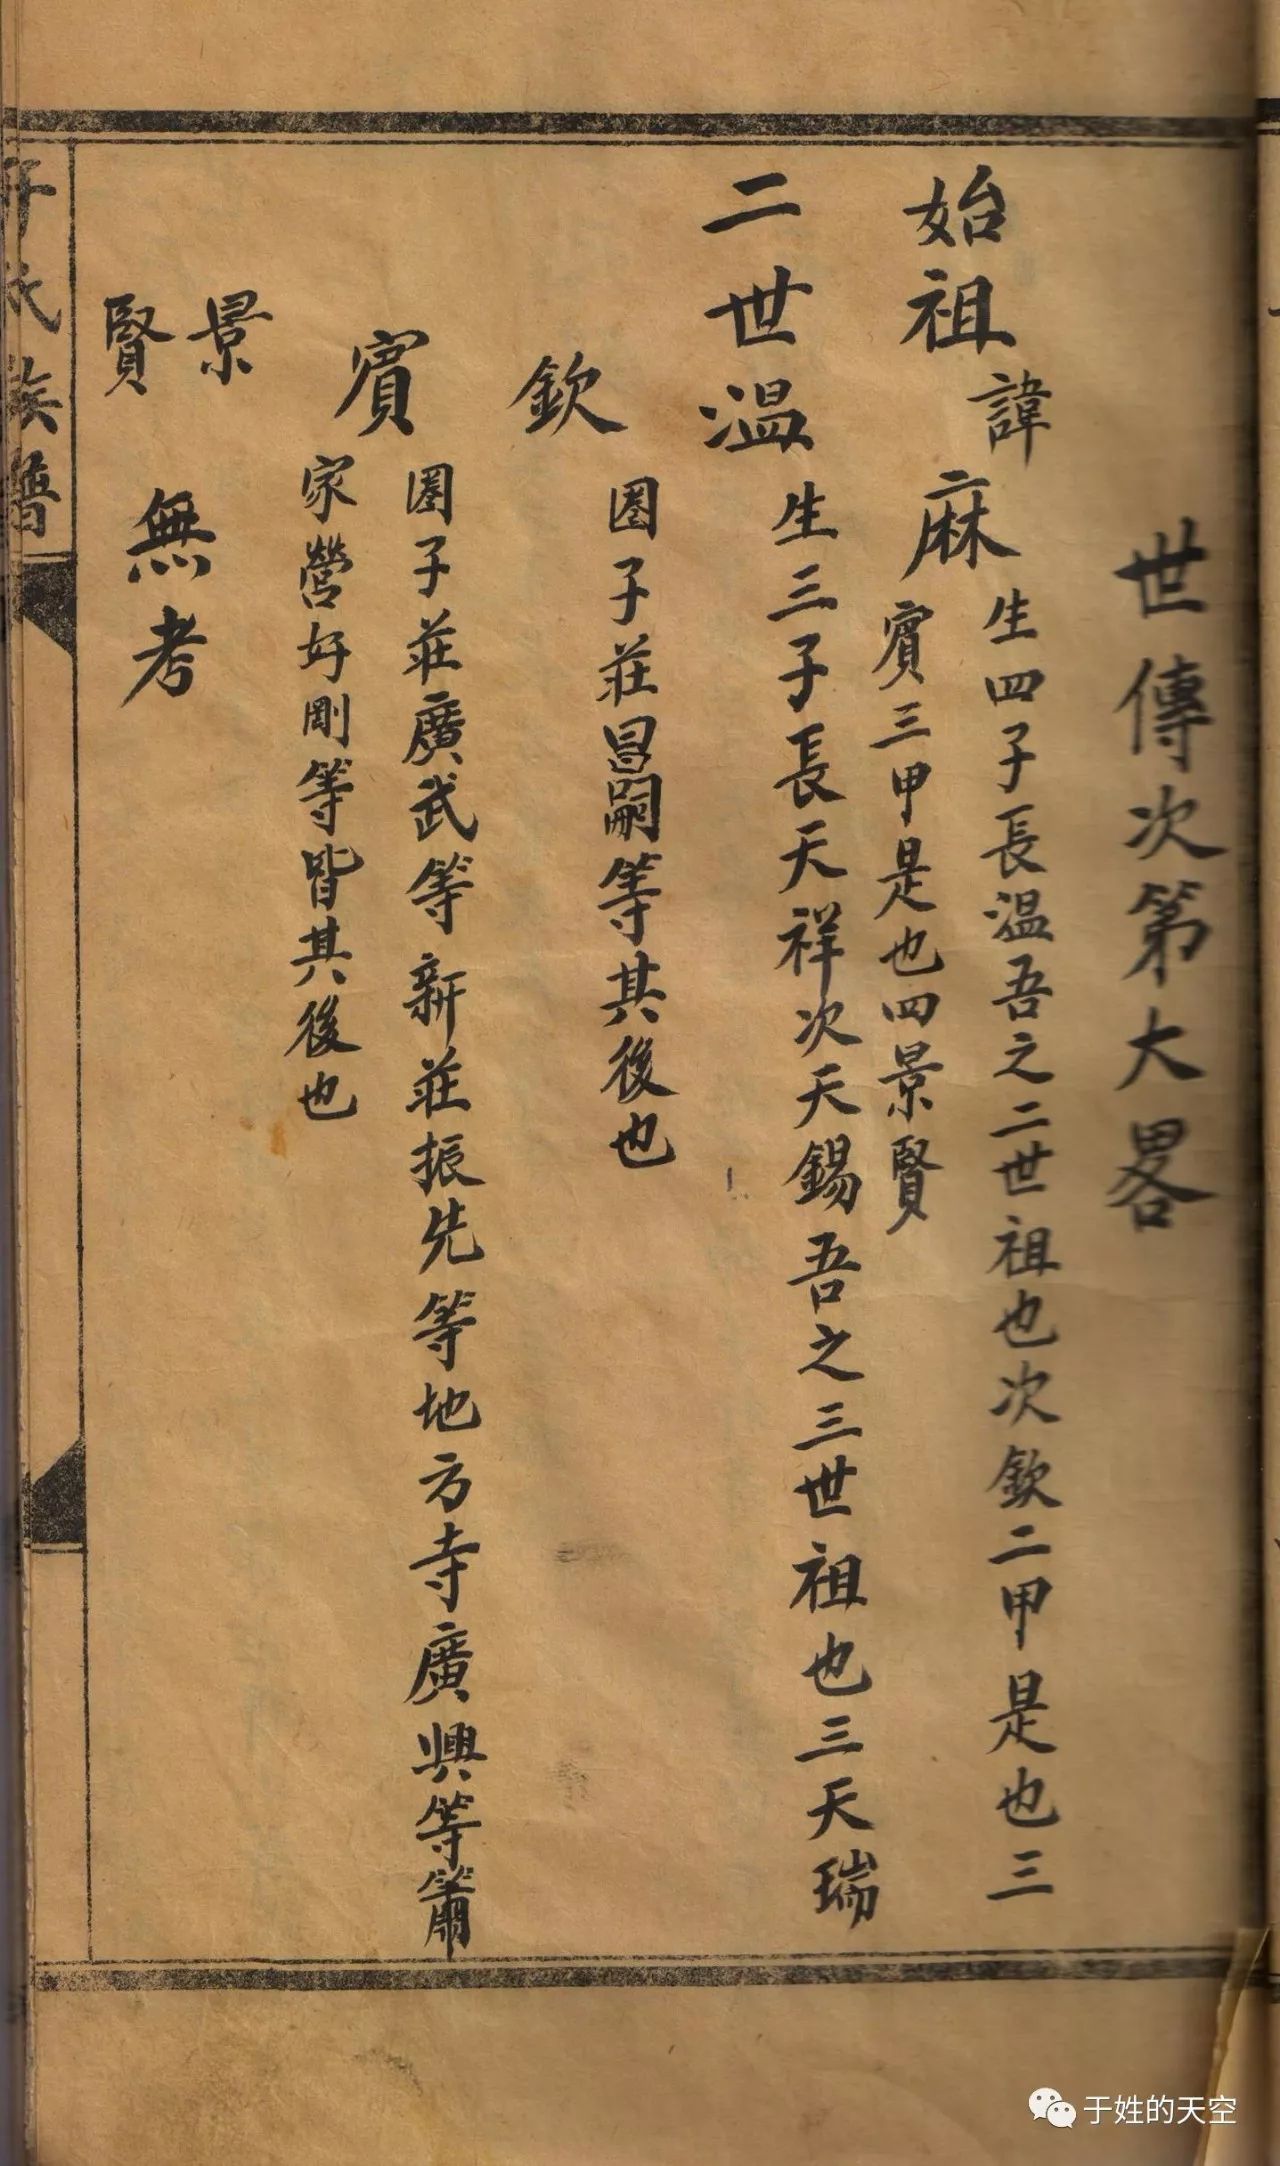 世傳次第大畧
始祖諱麻生四子長溫吾之二世祖也次欽二甲是也三
賓三甲是也四景賢
二世溫生三子長天祥次天錫吾之三世祖也三天瑞
欽圈子莊昌嗣等其後也
賓圈子莊廣武等新莊振先等地方寺廣興等簫
家營好剛等皆其後也
景賢無考
于氏族譜
于姓的天空